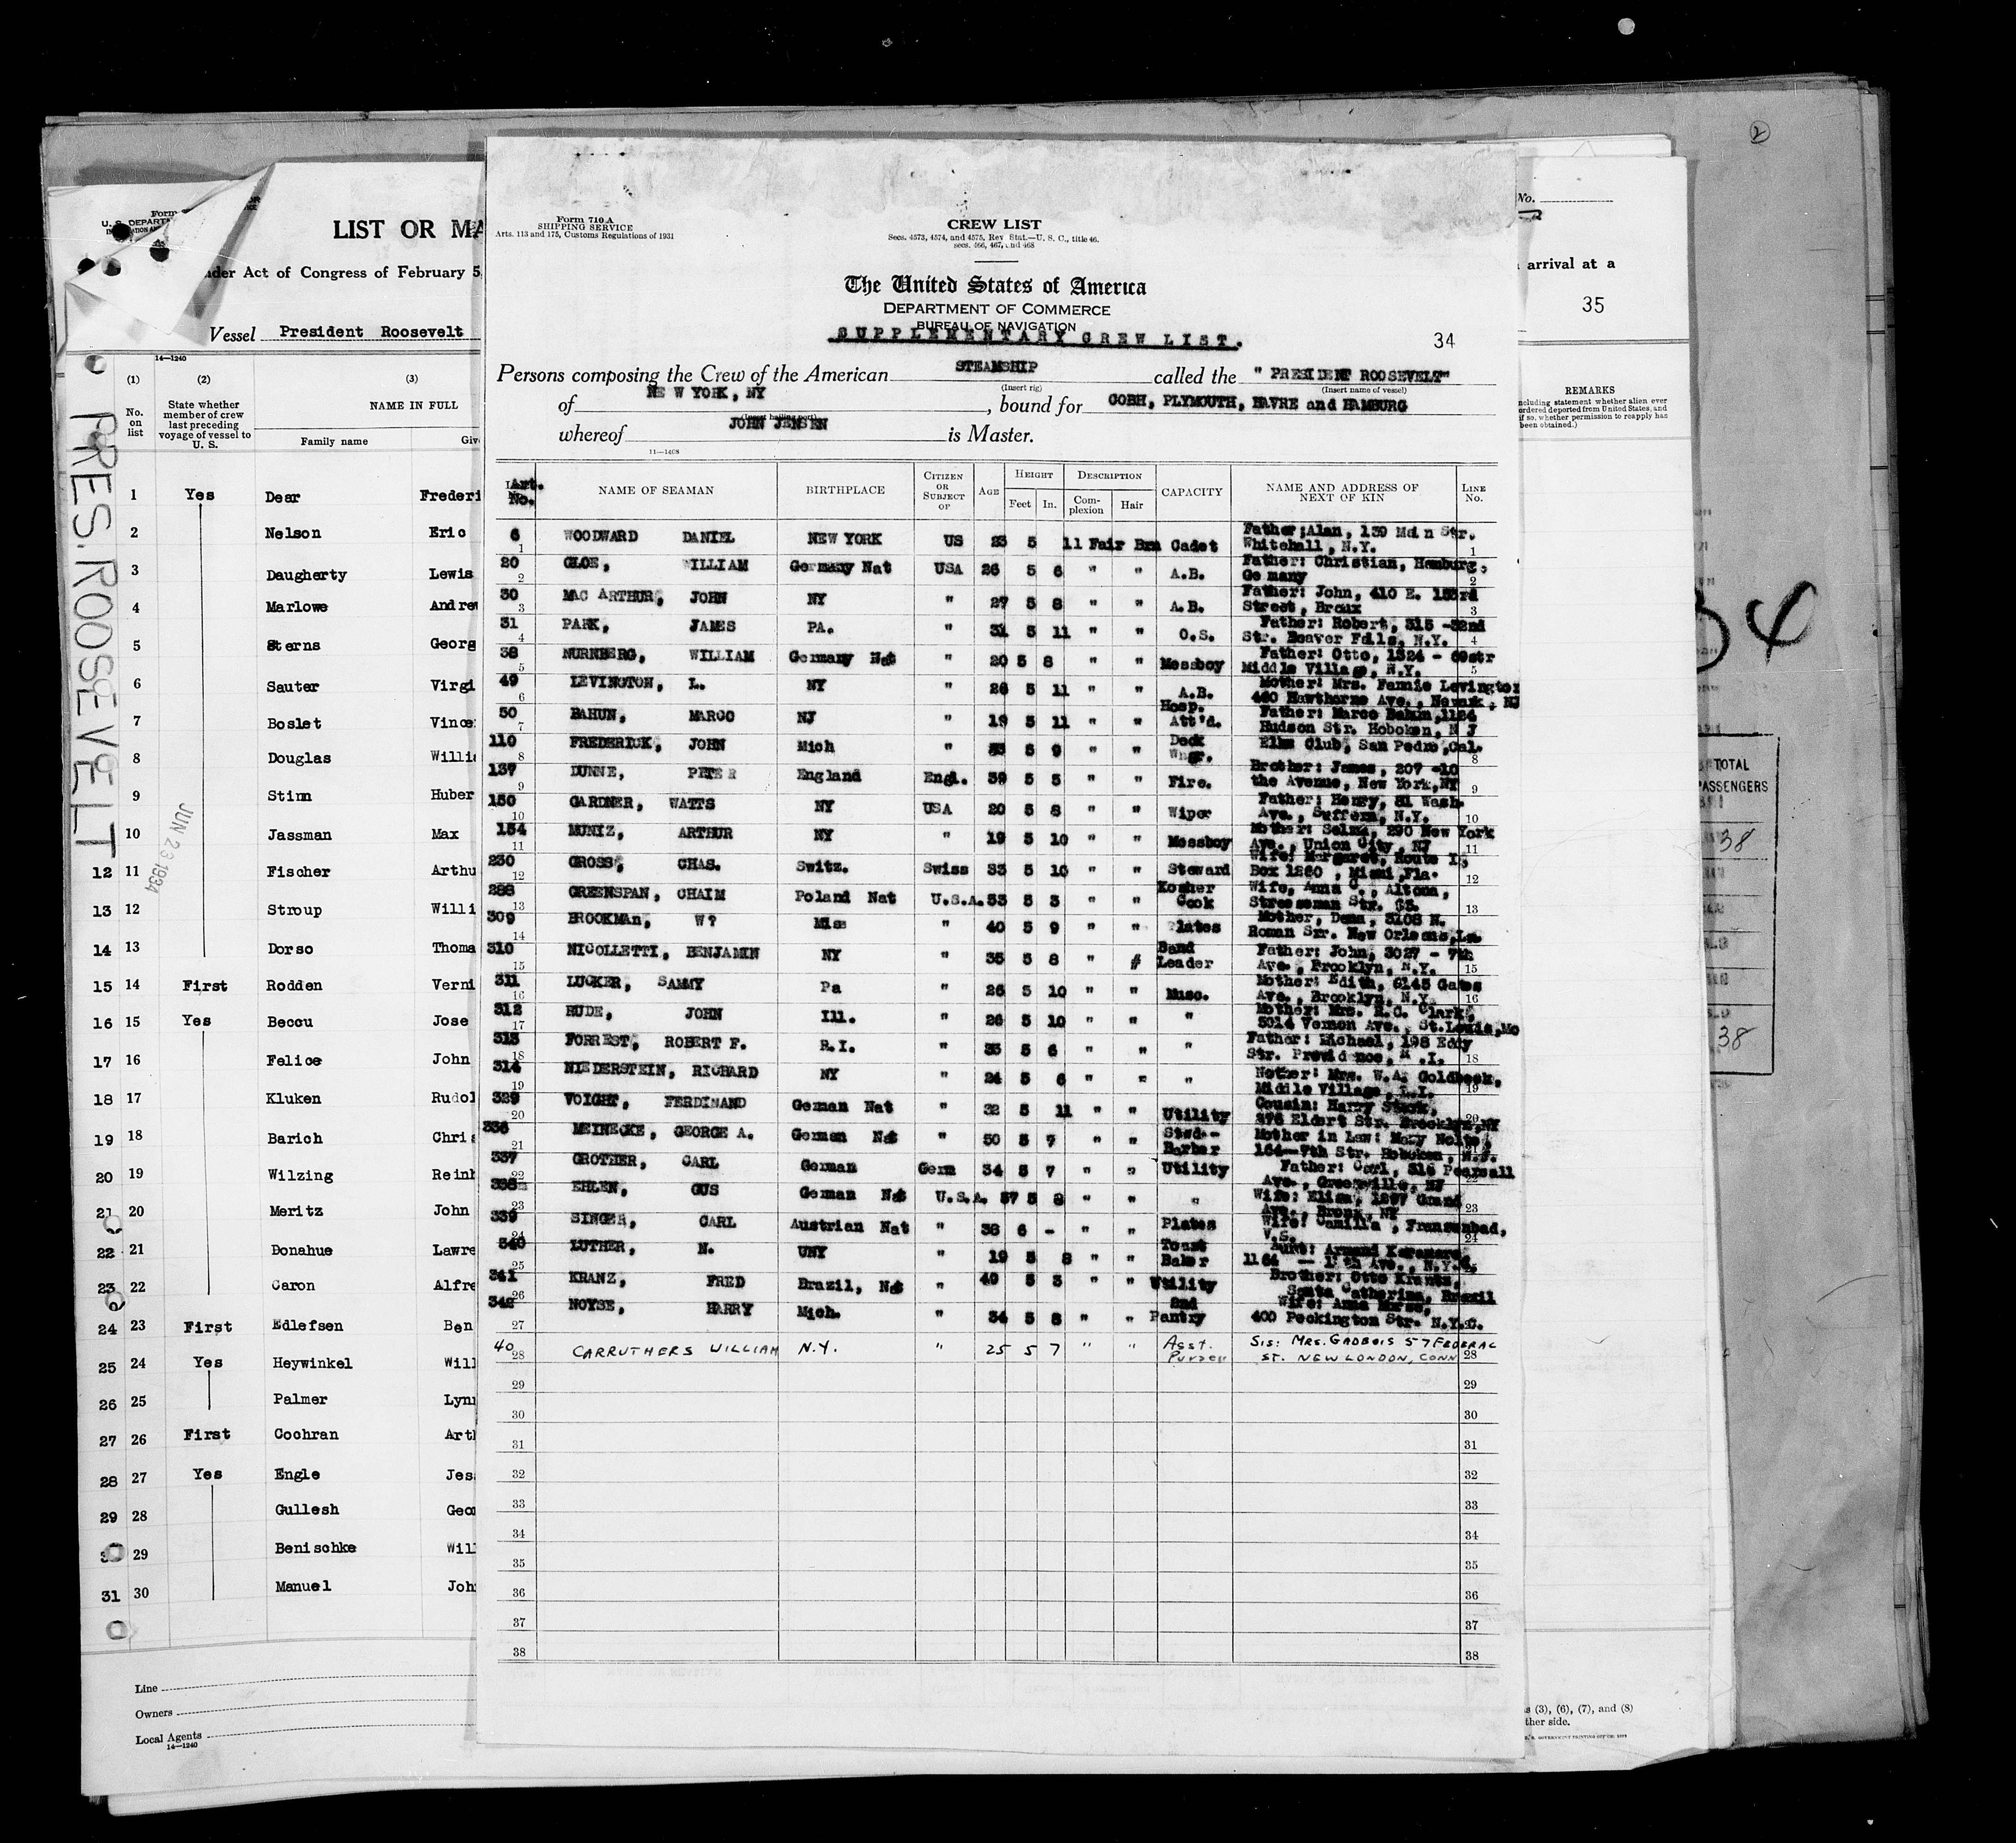 2
No.
arrival at a
35
REMARKS
ordered deported from United States, and
if so, whether permission to reapply has
been obtained.)
34
TOTAL
PASSENGERS
38
38
s (3), (6), (7), and (8)
ther side.
Form
U. S. DEPARTM
LIST OR MA
nder Act of Congress of February 5
Vessel President Roosevelt
14—1240
(1) (2) (3)
No. on list State whether member of crew last preceding voyage of vessel to U. S. NAME IN FULL
Family name Giv
PRES. ROOSEVELT
JUN 23 1934
1 Yes Dear Frederi
2 Nelson Eric
3 Daugherty Lewis
4 Marlowe Andrew
5 Sterns Georg
6 Sauter Virgi
7 Boslet Vince
8 Douglas Willi
9 Stinn Huber
10 Jassman Max
12 11 Fischer Arthu
13 12 Stroup Willi
14 13 Dorso Thoma
15 14 First Rodden Verni
16 15 Yes Beccu Jose
17 16 Felice John
18 17 Kluken Rudol
19 18 Barich Chris
20 19 Wilzing Reinh
21 20 Meritz John
22 21 Donahue Lawre
23 22 Caron Alfre
24 23 First Edlefsen Ben
25 24 Yes Heywinkel Will
26 25 Palmer Lyn
27 26 First Cochran Art
28 27 Yes Engle Jes
29 28 Gullesh Geo
29 Benischke Wil
31 30 Manuel Joh
Line
Owners
Local Agents
14—1240
Form 710 A
SHIPPING SERVICE
Arts. 113 and 175, Customs Regulations of 1931
CREW LIST
Secs. 4573, 4574, and 4575, Rev. Stat.—U. S. C., title 46,
secs. 466, 467, and 468
The United States of America
DEPARTMENT OF COMMERCE
BUREAU OF NAVIGATION
SUPPLEMENTARY CREW LIST.
34
Persons composing the Crew of the American STEAMSHIP called the "PRESIDENT ROOSEVELT"
(Insert rig) (Insert name of vessel)
of NEW YORK, NY, bound for COBH, PLYMOUTH, HAVRE and HAMBURG
(Insert hailing port)
whereof JOHN JENSEN is Master.
11—1408
Art. No. NAME OF SEAMAN BIRTHPLACE CITIZEN OR SUBJECT OF AGE HEIGHT Feet In. DESCRIPTION Complexion Hair CAPACITY NAME AND ADDRESS OF NEXT OF KIN LINE No.
6 1 WOODWARD DANIEL NEW YORK US 23 5 11 Fair Brn Cadet Father;Alan, 139 Main Str. Whitehall, N.Y. 1
20 2 GLOE, WILLIAM Germany Nat USA 26 5 6 " " A.B. Father: Christian, Hamburg, Germany 2
30 3 MAC ARTHUR, JOHN NY " 27 5 8 " " A.B. Father: John, 410 E. 153rd Street, Bronx 3
31 4 PARK, JAMES PA. " 31 5 11 " " O.S. Father: Robert, 315 -32nd Str. Beaver Falls, N.Y. 4
38 5 NURNBERG, WILLIAM Germany Nat " 20 5 8 " " Messboy Father: Otto, 1324 - 69str Middle Village, N.Y. 5
49 6 LEVINGTON, L. NY " 26 5 11 " " A.B. Mother: Mrs. Fannie Levington 460 Hawthorne Ave., Newark, NJ
50 7 BAHUN, MARCO NJ " 19 5 11 " " Hosp. Att'd. Father: Marco Bahun,1124 Hudson Str. Hoboken, N J
110 8 FREDERICK, JOHN Mich " 5 9 " " Deck Wngr. Elks Club, San Pedro,Cal. 8
137 9 DUNNE, PETER England Engl. 39 5 5 " " Fire. Brother: James, 207 -10 the Avenue, New York,NY 9
150 10 GARDNER, WATTS NY USA 20 5 8 " " Wiper Father: Henry, 31 Wash. Ave., Suffern, N.Y. 10
154 11 MUNIZ, ARTHUR NY " 19 5 10 " " Messboy Mother: Selma, 290 New York Ave., Union City, NJ 11
230 12 GROSS, CHAS. Switz. Swiss 33 5 10 " " Steward Wife: Margaret, Route 1, Box 1260, Miami,Fla. 12
288 13 GREENSPAN, CHAIM Poland Nat U.S.A. 53 5 3 " " Kosher Cook Wife, Anna C., Altona, Stresseman Str. 63. 13
309 14 BROOKMAN, W? Miss " 40 5 9 " " Plates Mother, Dena, 3108 N. Roman Str. New Orleans,La.
310 15 NICOLLETTI, BENJAMIN NY " 35 5 8 " # Band Leader Father: John, 3027 - 7th Ave., Brooklyn, N.Y. 15
311 16 LUCKER, SAMMY Pa " 26 5 10 " " Musc. Mother: Edith, 6145 Gates Ave., Brooklyn, N.Y. 16
312 17 HUDE, JOHN Ill. " 26 5 10 " " " Mother: Mrs. R.C. Clark, 5014 Vernon Ave., St.Louis,Mo
313 18 FORREST, ROBERT F. R.I. " 35 5 6 " " " Father: Michael, 198 Eddy Str. Providence, R.I. 18
314 19 NIEDERSTEIN, RICHARD NY " 24 5 6 " " " Mother: Mrs. W.A. Goldbeck, Middle Village, L.I. 19
329 20 VOIGHT, FERDINAND German Nat " 32 5 11 " " Utility Cousin: Harry Stark, 276 Eldert Str. Brooklyn,NY 20
336 21 MEINECKE, GEORGE A. German Nat " 50 5 7 " " Stwd.- Barber Mother in Law: Mary Nolte, 164-7th Str. Hoboken, N.J.
337 22 GROTHER, CARL German Germ 34 5 7 " " Utility Father: Carl, 316 Pearsall Ave., Greenville, NJ 22
338 23 EHLEN, GUS German Nat U.S.A. 37 5 8 " " " Wife: Elisa, 1297 Grand Ave., Bronx, NY 23
339 24 SINGER, CARL Austrian Nat " 38 6 - " " Plates Wife: Camilla, Fransenbad, V.S. 24
340 25 LUTHER, N. UNY " 19 5 8 " " Toast Baker Aunt: Armand 1164 — 1 th Ave., N.Y.C.
341 26 KRANZ, FRED Brazil, Nat " 49 5 3 " " Utility Brother: Otto Krantz, Santa Catherina, Brazil
342 27 NOYSE, HARRY Mich. " 34 5 8 " " 2nd Pantry Wife: Anna 400 Peckington Str. N.Y.C.
40 28 CARRUTHERS WILLIAM N.Y. " 25 5 7 " " Asst. Purser SIS: MRS. GADBOIS 57 FEDERAL ST. NEW LONDON, CONN 28
29 29
30 30
31 31
32 32
33 33
34 34
35 35
36 36
37 37
38 38